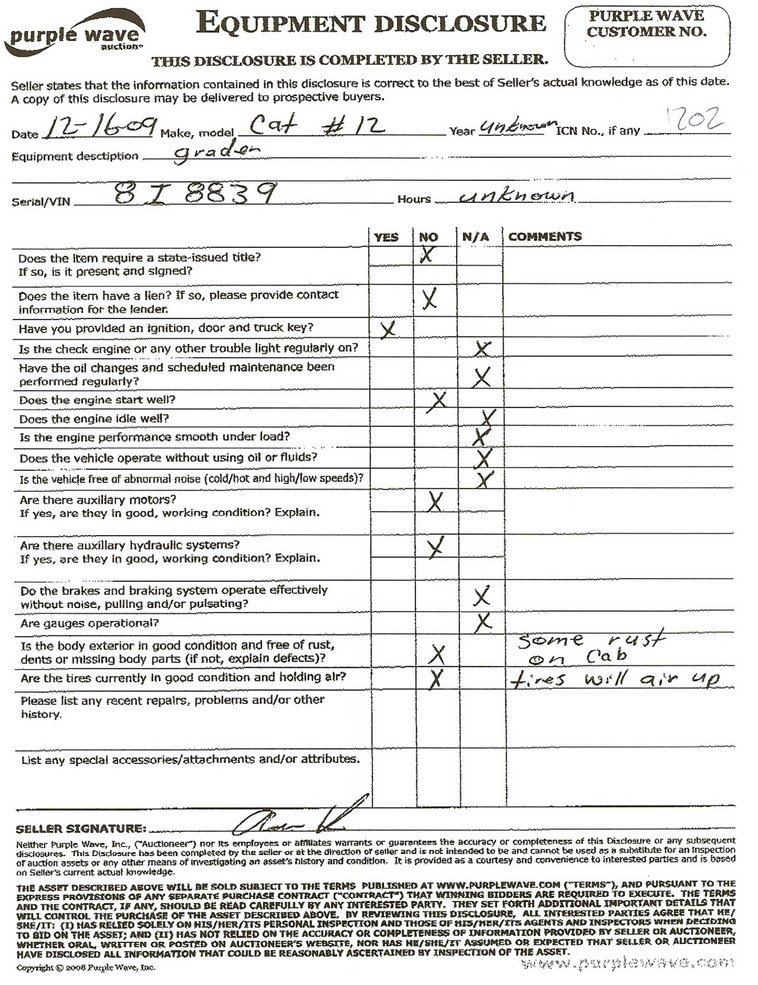 purple wave
auction™
EQUIPMENT DISCLOSURE
PURPLE WAVE
CUSTOMER NO.
THIS DISCLOSURE IS COMPLETED BY THE SELLER.
Seller states that the information contained in this disclosure is correct to the best of Seller's actual knowledge as of this date.
A copy of this disclosure may be delivered to prospective buyers.
Date 12-16-09 Make, model Cat #12 Year unknown ICN No., if any 1202
Equipment desctiption grader
Serial/VIN 8I8839 Hours unknown
YES NO N/A COMMENTS
Does the item require a state-issued title? X
If so, is it present and signed?
Does the item have a lien? If so, please provide contact X
information for the lender.
Have you provided an ignition, door and truck key? X
Is the check engine or any other trouble light regularly on? X
Have the oil changes and scheduled maintenance been X
performed regularly?
Does the engine start well? X
Does the engine idle well? X
Is the engine performance smooth under load? X
Does the vehicle operate without using oil or fluids? X
Is the vehicle free of abnormal noise (cold/hot and high/low speeds)? X
Are there auxiliary motors? X
If yes, are they in good, working condition? Explain.
Are there auxiliary hydraulic systems? X
If yes, are they in good, working condition? Explain.
Do the brakes and braking system operate effectively X
without noise, pulling and/or pulsating?
Are gauges operational? X
Is the body exterior in good condition and free of rust, X some rust
dents or missing body parts (if not, explain defects)? on Cab
Are the tires currently in good condition and holding air? X tires will air up
Please list any recent repairs, problems and/or other
history.
List any special accessories/attachments and/or attributes.
SELLER SIGNATURE:
Neither Purple Wave, Inc., ("Auctioneer") nor its employees or affiliates warrants or guarantees the accuracy or completeness of this Disclosure or any subsequent
disclosures. This Disclosure has been completed by the seller or at the direction of seller and is not intended to be and cannot be used as a substitute for an inspection
of auction assets or any other means of investigating an asset's history and condition. It is provided as a courtesy and convenience to interested parties and is based
on Seller's current actual knowledge.
THE ASSET DESCRIBED ABOVE WILL BE SOLD SUBJECT TO THE TERMS PUBLISHED AT WWW.PURPLEWAVE.COM ("TERMS"), AND PURSUANT TO THE
EXPRESS PROVISIONS OF ANY SEPARATE PURCHASE CONTRACT ("CONTRACT") THAT WINNING BIDDERS ARE REQUIRED TO EXECUTE. THE TERMS
AND THE CONTRACT, IF ANY, SHOULD BE READ CAREFULLY BY ANY INTERESTED PARTY. THEY SET FORTH ADDITIONAL IMPORTANT DETAILS THAT
WILL CONTROL THE PURCHASE OF THE ASSET DESCRIBED ABOVE. BY REVIEWING THIS DISCLOSURE, ALL INTERESTED PARTIES AGREE THAT HE/
SHE/IT: (I) HAS RELIED SOLELY ON HIS/HER/ITS PERSONAL INSPECTION AND THOSE OF HIS/HER/ITS AGENTS AND INSPECTORS WHEN DECIDING
TO BID ON THE ASSET; AND (II) HAS NOT RELIED ON THE ACCURACY OR COMPLETENESS OF INFORMATION PROVIDED BY SELLER OR AUCTIONEER,
WHETHER ORAL, WRITTEN OR POSTED ON AUCTIONEER'S WEBSITE, NOR HAS HE/SHE/IT ASSUMED OR EXPECTED THAT SELLER OR AUCTIONEER
HAVE DISCLOSED ALL INFORMATION THAT COULD BE REASONABLY ASCERTAINED BY INSPECTION OF THE ASSET.
Copyright © 2008 Purple Wave, Inc.
www.purplewave.com